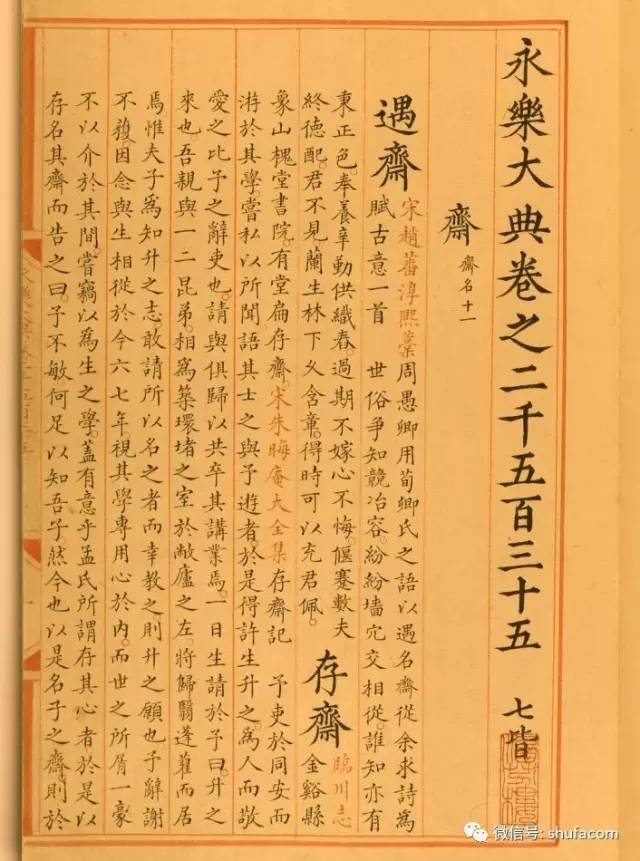 永樂大典卷之二千五百三十五 七皆
齋 齋名十一
遇齋 宋趙蕃淳熙藁周愚卿用荀卿氏之語以遇名齋從余求詩爲
賦古意一首 世俗爭知競冶容紛紛墻穴交相從誰知亦有
秉正色奉養辛勤供織舂過期不嫁心不悔偃蹇數夫
終德配君不見蘭生林下乆含章得時可以充君佩 存齋 臨川志
金谿縣
象山槐堂書院有堂扁存齋宋朱晦庵大全集存齋記 予吏於同安而
游於其學嘗私以所聞語其士之與予遊者於是得許生升之爲人而敬
愛之比予之辭吏也請與俱歸以共卒其講業焉一日生請於予曰升之
來也吾親與一二昆弟相爲築環堵之室於敝廬之左將歸翳蓬藋而居
焉惟夫子爲知升之志敢請所以名之者而幸教之則升之願也予辭謝
不獲因念與生相從於今六七年視其學專用心於内而世之所屑一豪
不以介於其間嘗竊以爲生之學蓋有意乎孟氏所謂存其心者於是以
存名其齋而告之曰予不敏何足以知吾子然今也以是名子之齋則於
微信号: shufacom